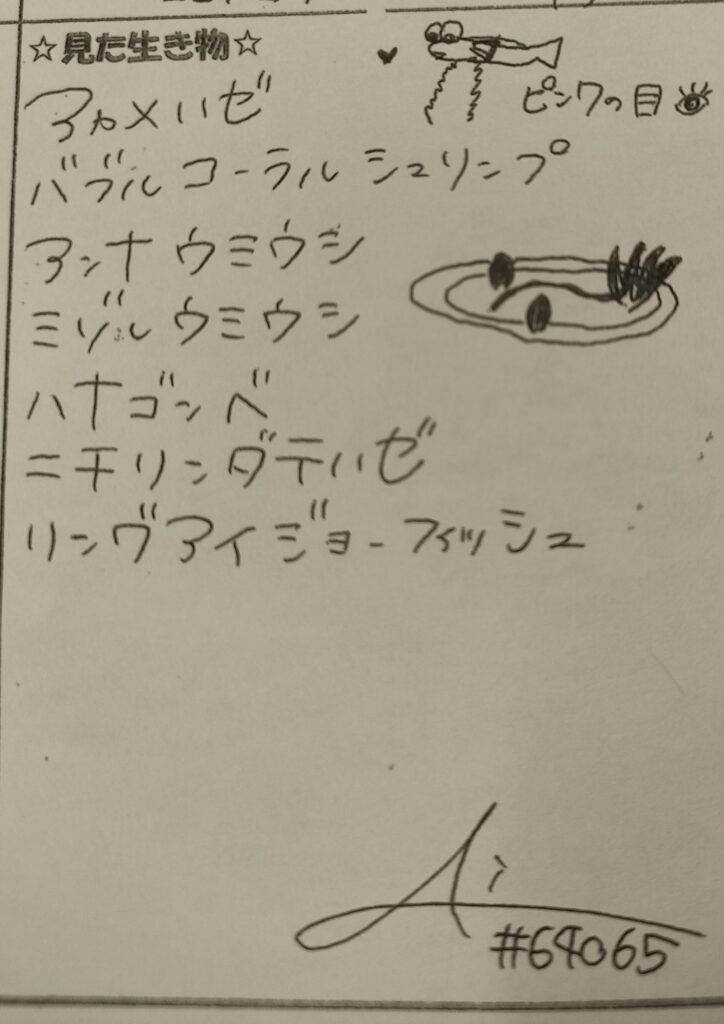 ☆見た生き物☆
アカメハゼ
ピンクの目
バブルコーラルシュリンプ
アンナウミウシ
ミゾレウミウシ
ハナゴンベ
ニチリンダテハゼ
リングアイジョーフィッシュ
Ai
#64065